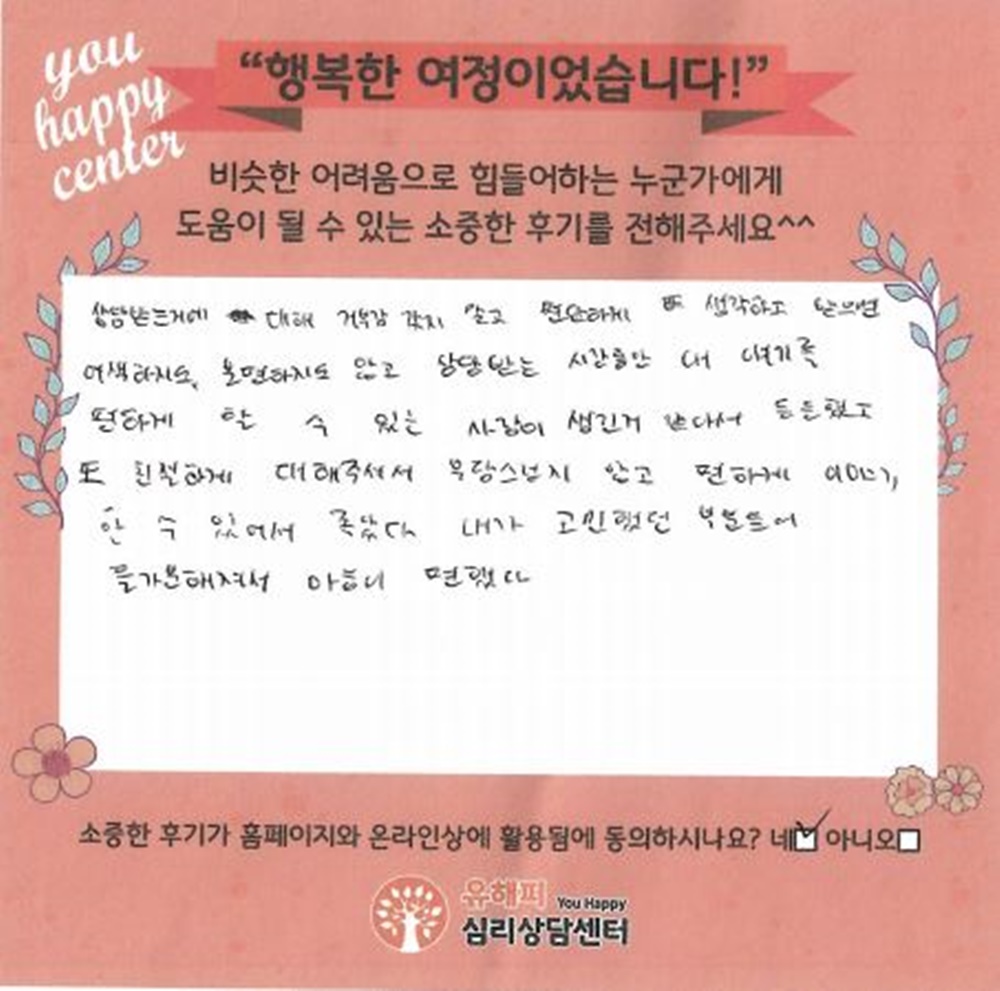 you
happy
center
“행복한 여정이었습니다!”
비슷한 어려움으로 힘들어하는 누군가에게
도움이 될 수 있는 소중한 후기를 전해주세요^^
상담받는거에 대해 거부감 갖지 말고 편안하게 생각하고 받으면
어색하지도, 불편하지도 않고 상담받는 시간동안 내 얘기를
편하게 할 수 있는 사람이 생긴거 같다서 든든했고
또 친절하게 대해주셔서 부담스럽지 않고 편하게 이야기,
할 수 있어서 좋았다 내가 고민했던 부분들이
홀가분해져서 마음이 편했다
소중한 후기가 홈페이지와 온라인상에 활용됨에 동의하시나요? 네 아니오
유해피 You Happy
심리상담센터